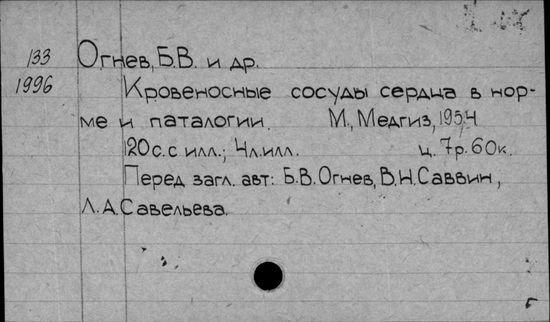 133 Огнев, Б.В. и др.
1996 Кровеносные сосуды сердца в нор-
ме и паталогии. М., Медгиз, 1954
120с. с илл.; 4л.илл. ц. 7р. 60к.
Перед загл. авт: Б.В.Огнев, В.Н.Саввин,
Л.А.Савельева.